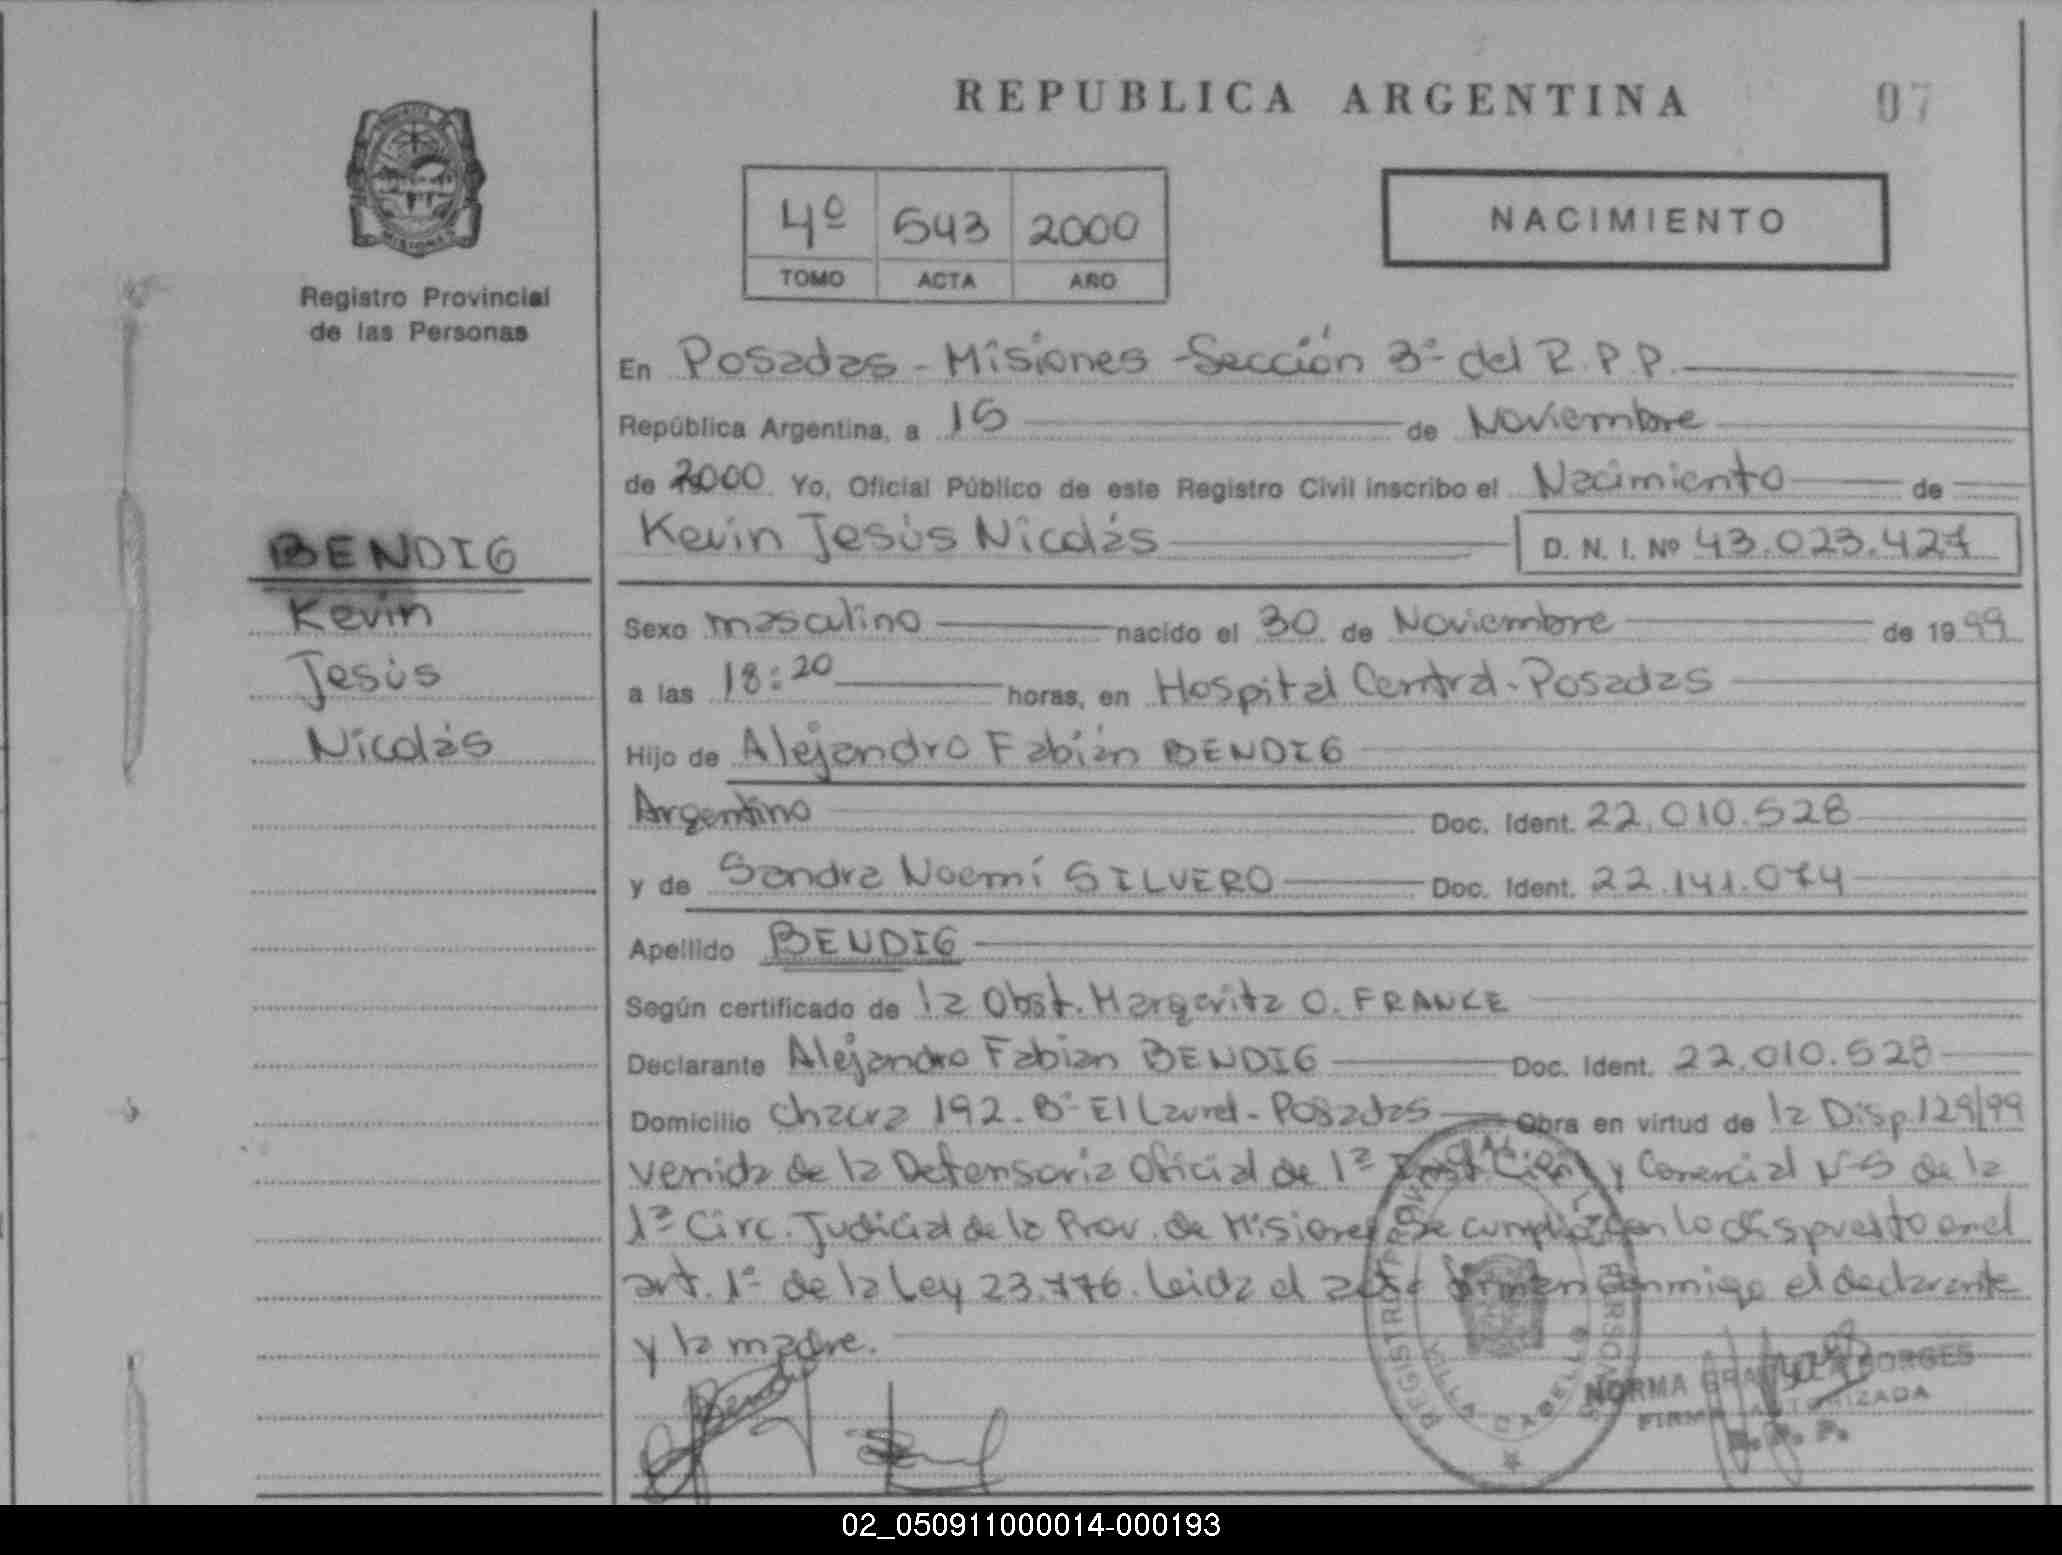 REPUBLICA ARGENTINA
07
4º 543 2000
TOMO ACTA AÑO
NACIMIENTO
MISIONES
Registro Provincial
de las Personas
BENDIG
Kevin
Jesús
Nicolás
En Posadas - Misiones - Sección 3ª del R.P.P.
República Argentina, a 15 de Noviembre
de 2000 Yo, Oficial Público de este Registro Civil inscribo el Nacimiento de
Kevin Jesús Nicolás D. N. I. Nº 43.023.427
Sexo masculino nacido el 30 de Noviembre de 1999
a las 18:20 horas, en Hospital Central - Posadas
Hijo de Alejandro Fabián BENDIG
Argentino Doc. Ident. 22.010.528
y de Sandra Noemí SILVERO Doc. Ident. 22.141.074
Apellido BENDIG
Según certificado de la Obst. Margarita O. FRANCE
Declarante Alejandro Fabian BENDIG Doc. Ident. 22.010.528
Domicilio Chacra 192 - Bº El Laurel - Posadas Obra en virtud de la Disp. 129/99
venida de la Defensoria Oficial de 1ª Inst. Civil y Comercial Nº5 de la
1ª Circ. Judicial de la Prov. de Misiones Se cumplió con lo dispuesto en el
art. 1º de la Ley 23.776. Leida el acta firman conmigo el declarante
y la madre.
Bendig
REGISTRO PROVINCIAL PERSONAS
NORMA BORGES
FIRMA AUTORIZADA
R. P. P.
02_050911000014-000193